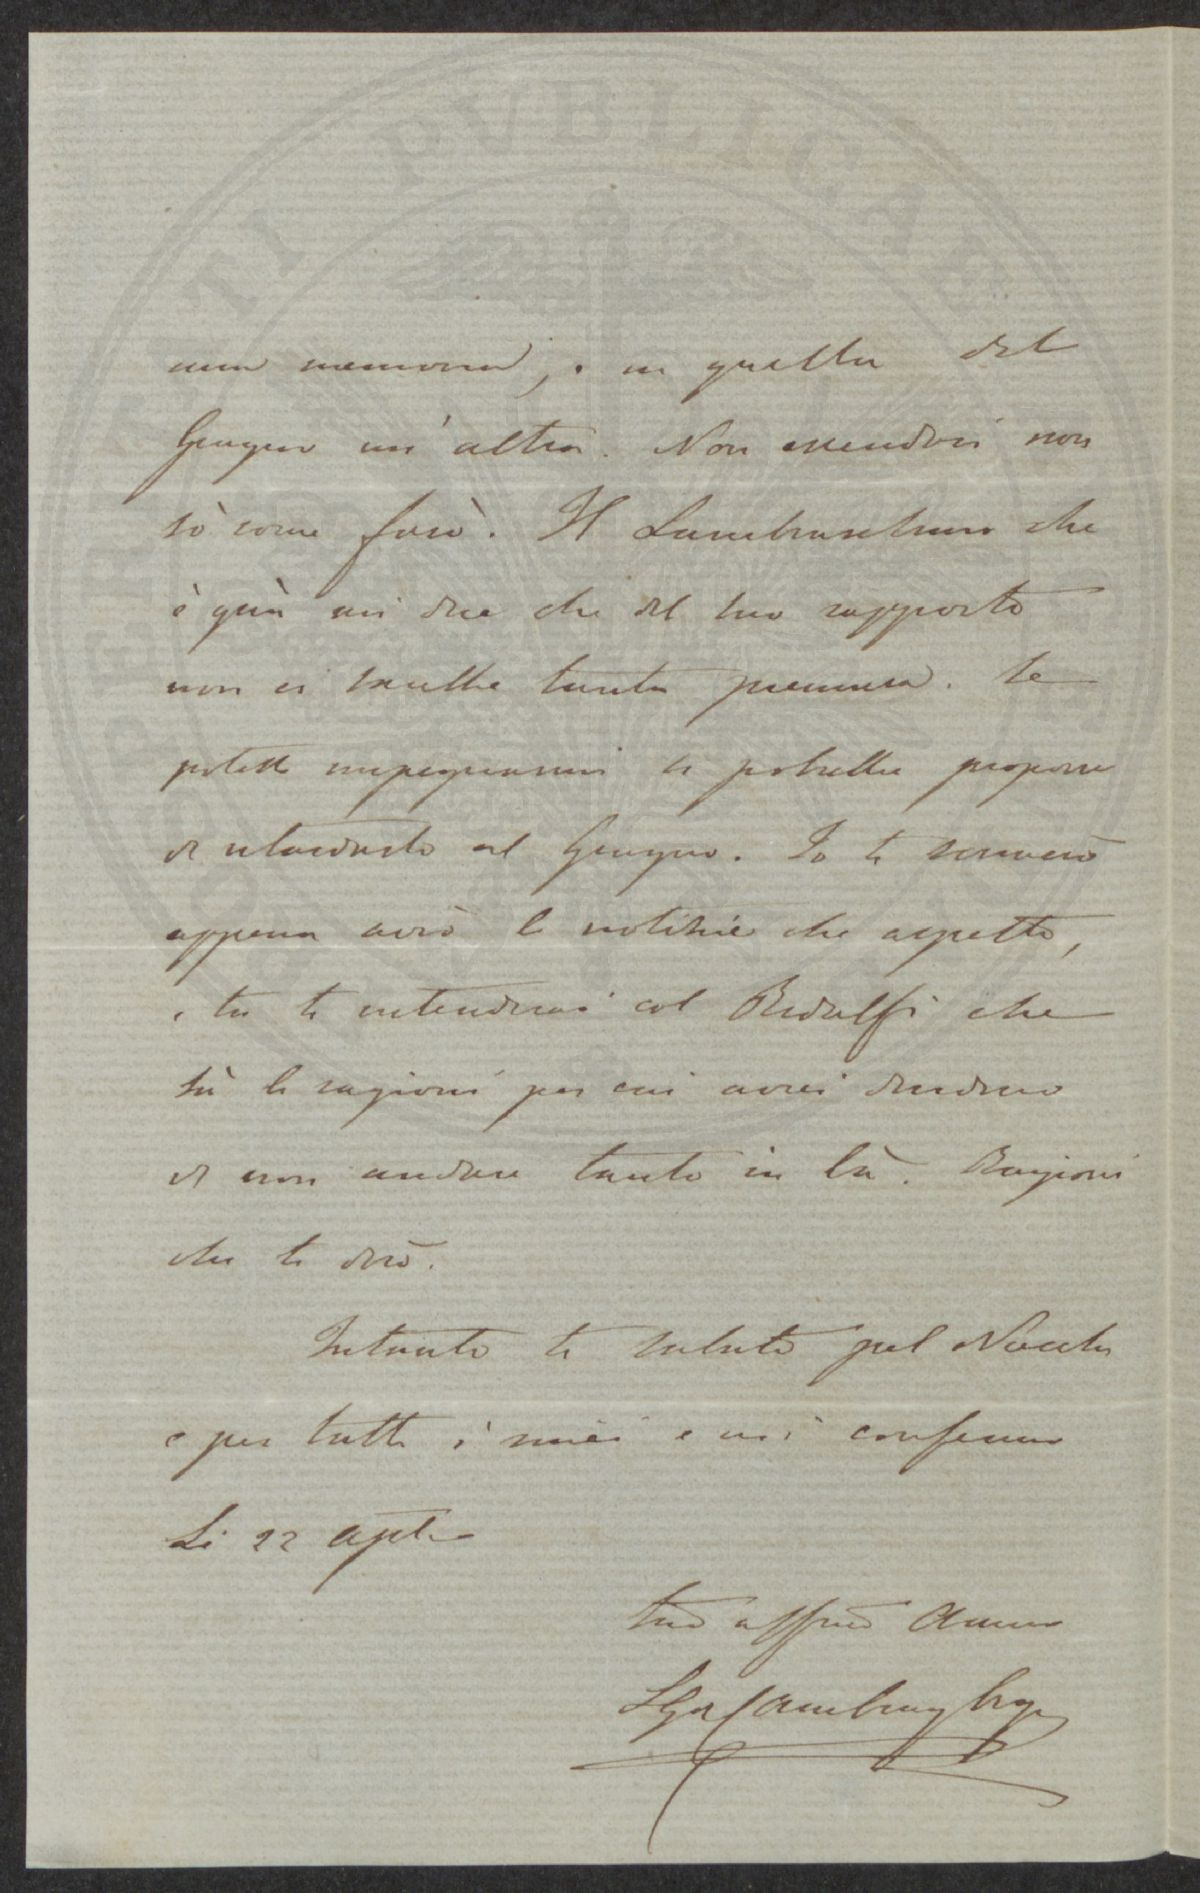 una memoria, e in quella del
Giugno un' altra. Non essendovi non
sò come farò. Il Lambruschini che
è quà mi dice che del tuo rapporto
non ci sarebbe tanta premura. Se
potesti impegnarmi si potrebbe proporre
di ritardarlo al Giugno. Io ti scriverò
appena avrò le notizie che aspetto,
e tu te intenderai col Ridolfi che
sà le ragioni per cui avrei desiderio
di non andare tanto in là. Ragioni
che ti dirò.
Intanto ti saluto pel
e per tutti i miei e mi confermo
Li 22 aple
tuo affmo Amico
LG de Cambray Digny
PVBLICAE